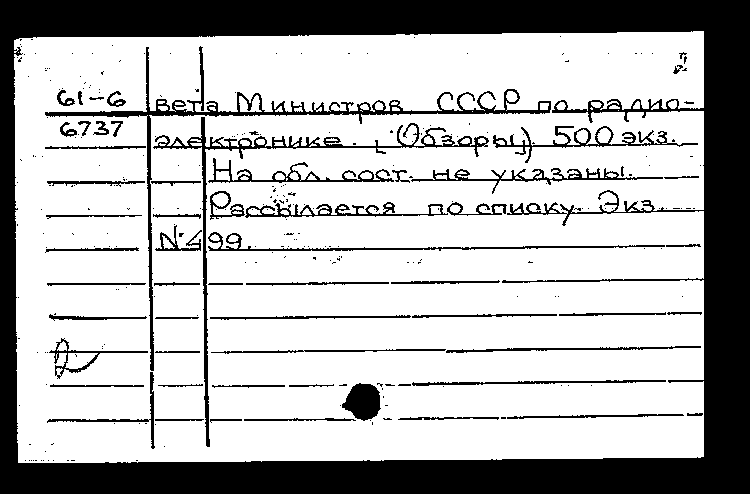 61-6 вета Министров СССР по радио-
6737 электронике. [(Обзоры)] 500 экз.
На обл. сост. не указаны.
Рассылается по списку. Экз.
№499.